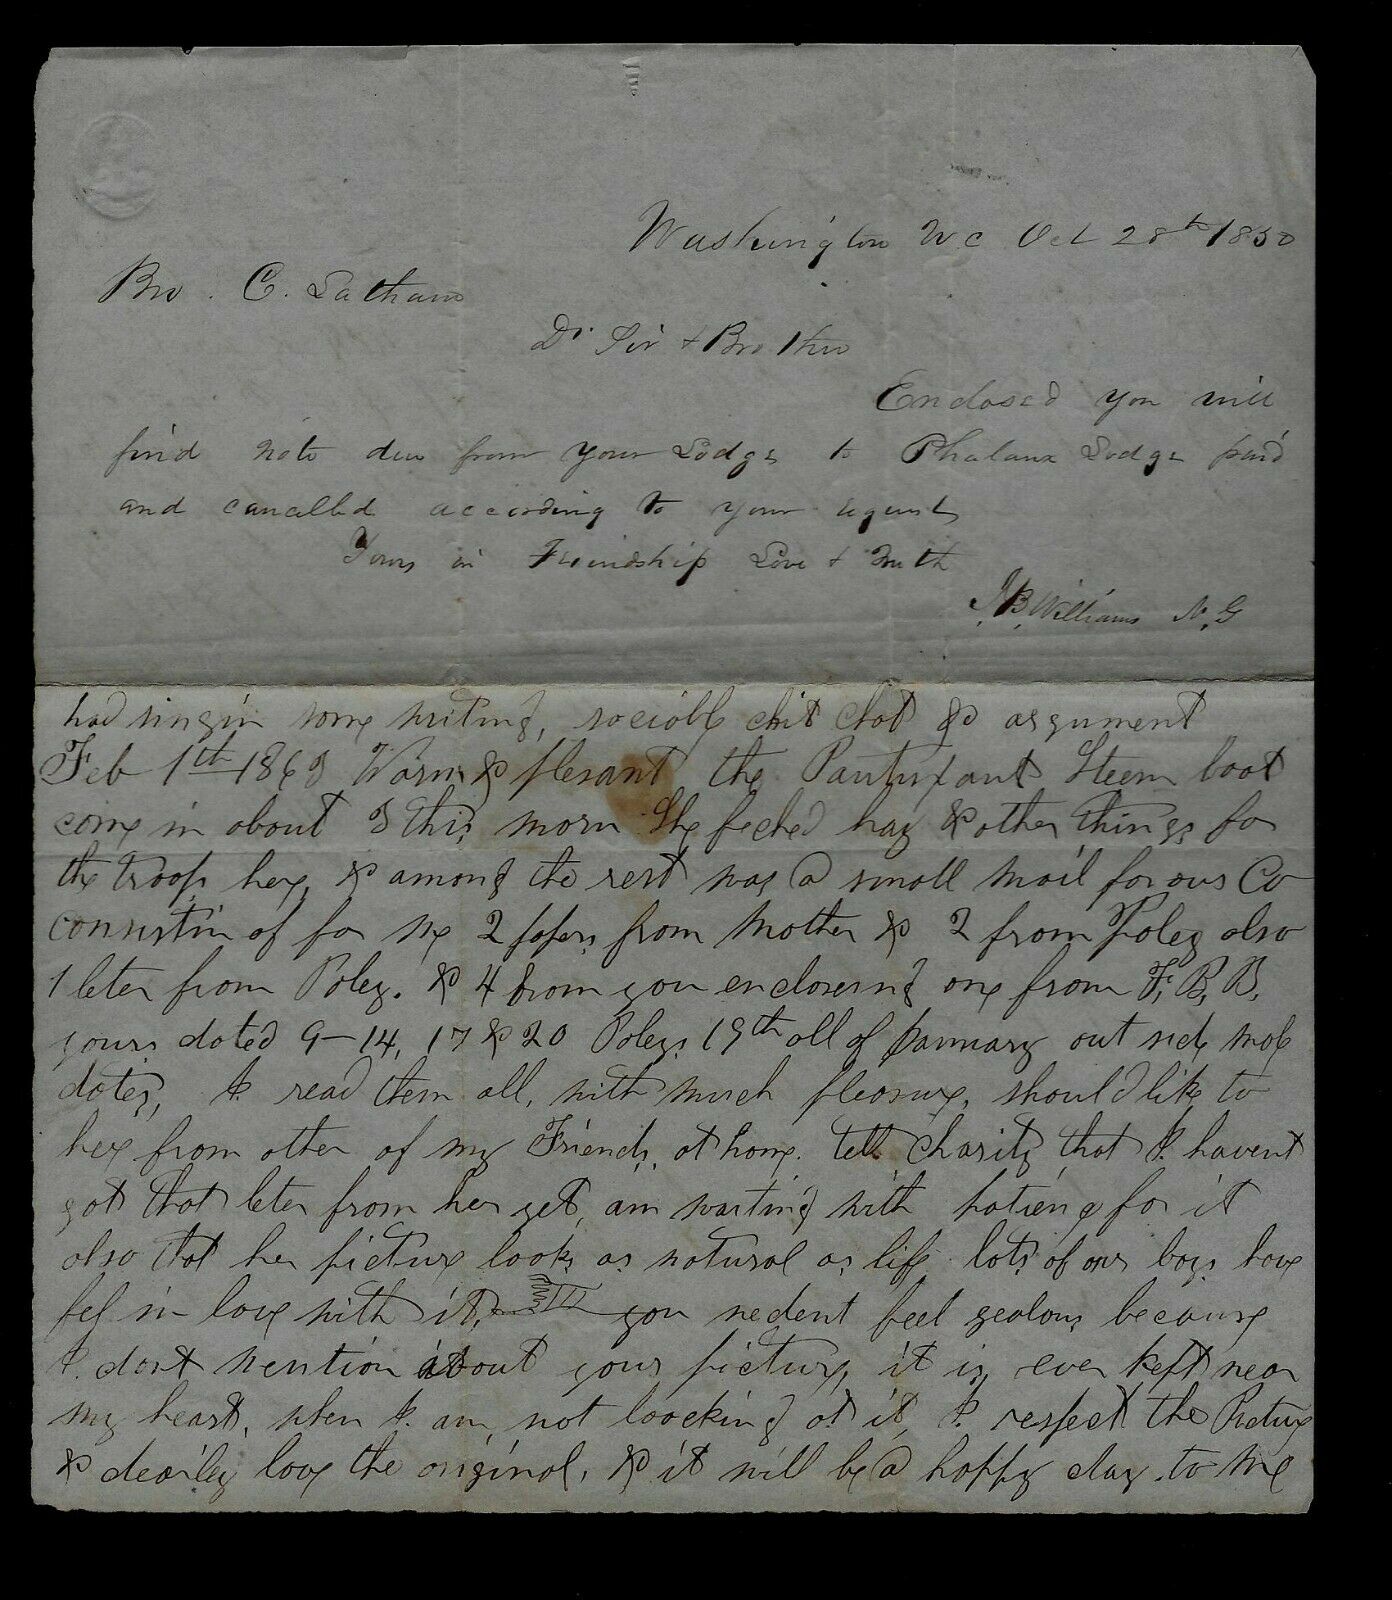 Washington N C Oct 28th 1850
Bro. C. Latham
Dr Sir & Brother
Enclosed you will
find note due from your Lodge to Phalanx Lodge paid
and cancelled according to your request
Yours in Friendship Love & Truth
J.B. Williams N.G
had singin some writing, sociable chit chat & argument
Feb 1th 1863 Warm & plesant the Steem boat
come in about 8 this morn She feched hay & other things for
the troops here, & among the rest was a small mail for ous Co
consistin of for me 2 papers from Mother & 2 from Poley also
1 leter from Poley. & 4 from you enclosering one from F. B. B.
yours dated 9–14, 17 & 20 Poleys 19th all of Jannuary out side
dates, I. read them all, with much pleasure, should like to
here from other of my Friends, at home. tell Charity that I. havent
got that leter from her yet, am waiting with patience for it
also that her picture looks as natural as life lots of our boys have
fel in love with it, you nedent feel gealous because
I. dont mention about your picture, it is ever kept near
my heart, when I. am not loocking at it, I. respect the Picture
& dearley love the original, & it will be a happy day to me